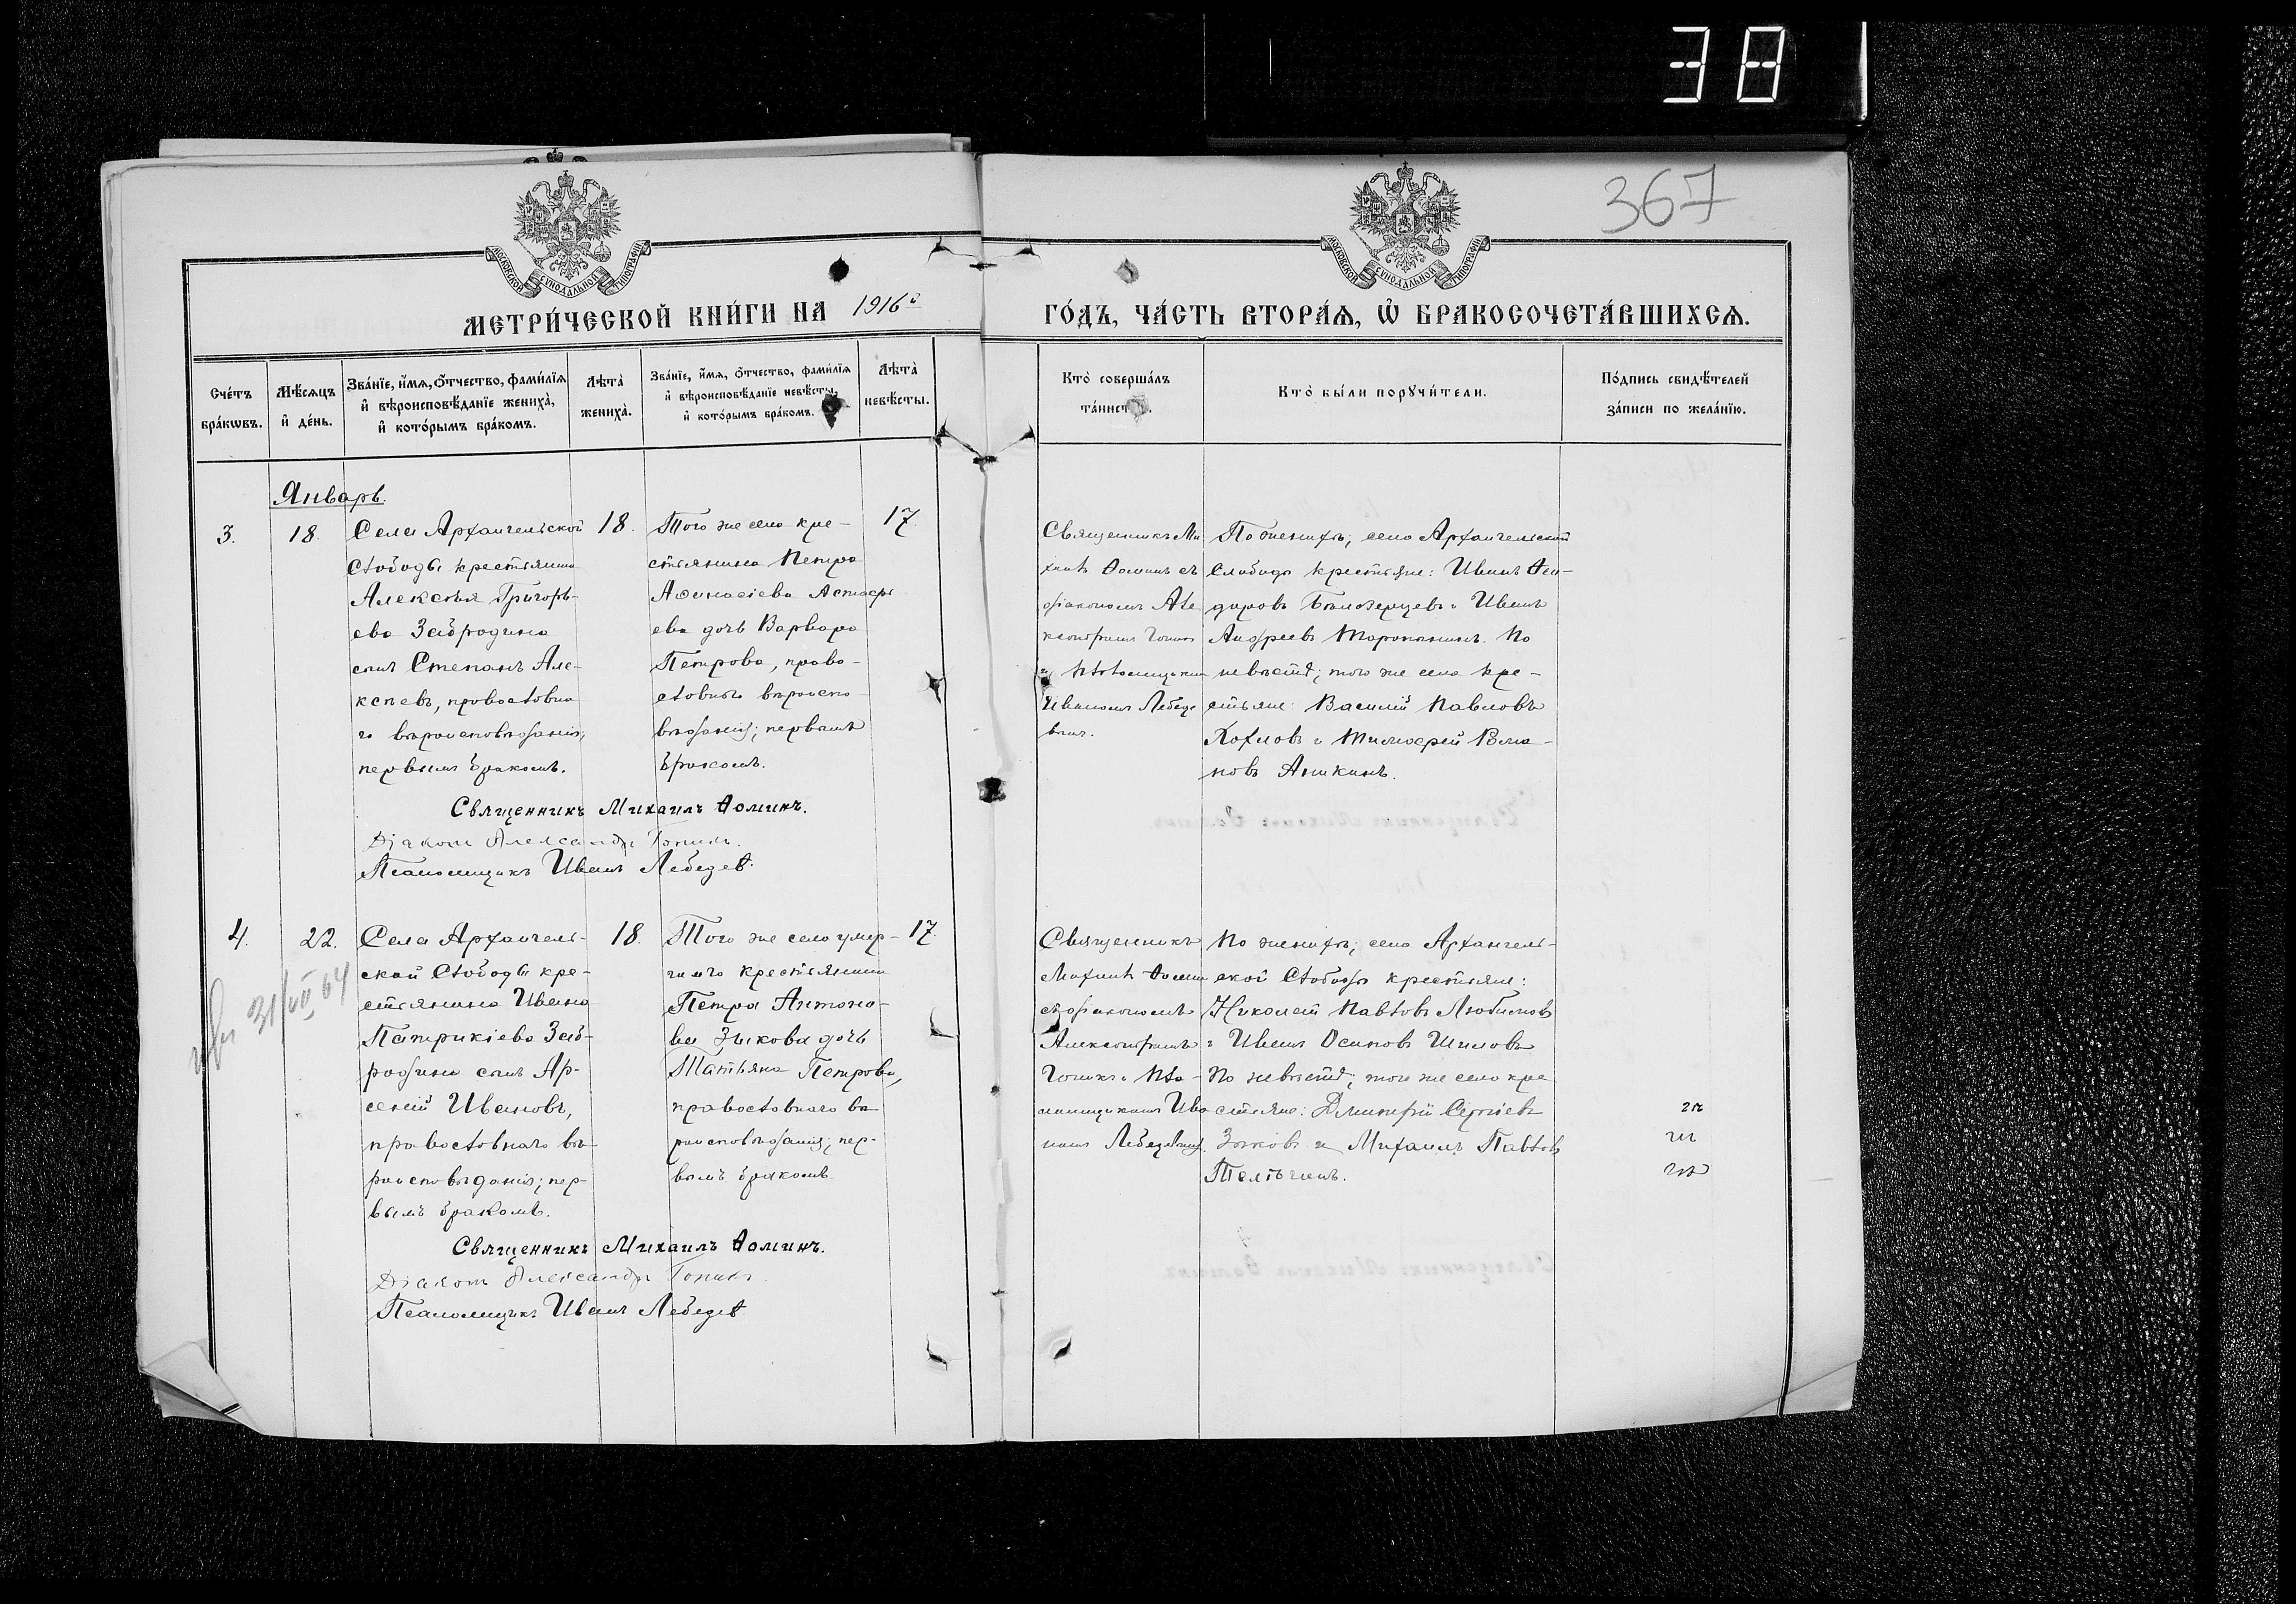 38
367
МОСКОВСКОЙ СИНОДАЛЬНОЙ ТИПОГРАФІИ
МОСКОВСКОЙ СИНОДАЛЬНОЙ ТИПОГРАФІИ
МЕТРИ́ЧЕСКОЙ КНИ́ГИ НА 1916й
ГО́ДЪ, ЧА́СТЬ ВТОРА́Ѧ, Ѡ҆ БРАКОСОЧЕТА́ВШИХСѦ.
Сче́тъ бра́кѡвъ.
Мѣ́сѧцъ и҆ де́нь.
Зва́нїе, и҆́мѧ, ѻ҆́тчество, фами́лїѧ и҆ вѣроисповѣ́данїе жениха̀, и҆ кото́рымъ бра́комъ.
Лѣ́та̀ жениха̀.
Зва́нїе, и҆́мѧ, ѻ҆́тчество, фами́лїѧ и҆ вѣроисповѣ́данїе невѣ́сты, и҆ кото́рымъ бра́комъ.
Лѣ́та̀ невѣ́сты.
Кто̀ соверша́лъ та́инст
Кто̀ бы́ли порꙋчи́тели.
По́дпись свидѣ́телей за́писи по жела́нїю.
Январь.
3.
18.
Села Архангельской
Слободы крестьянина
Алексѣя Григорь-
ева Забродина
сынъ Степанъ Але-
ксѣевъ, православна
го вѣроисповѣданія,
первымъ бракомъ.
18.
Того же села кре-
стьянина Петра
Аѳанасіева
ева дочь Варвара
Петрова, право-
славнаго вѣроиспо
вѣданія; первымъ
бракомъ.
17.
Священникъ Ми
хаилъ Ѳоминъ съ
діакономъ Але
ксандромъ
и псаломщикомъ
Иваномъ Лебеде
вымъ.
По женихѣ; села Архангельской
Слободы крестьяне: Иванъ Ѳео-
доровъ Бѣлозерцевъ и Иванъ
Андреевъ По
невѣстѣ; того же села кре-
стьяне: Василій Павловъ
Хохловъ и Тимоѳей Рома-
новъ Аникинъ.
Священникъ Михаилъ Ѳоминъ.
Діаконъ Александръ
Псаломщикъ Иванъ Лебедевъ.
4.
22.
Села Архангель-
ской Слободы кре-
стьянина Ивана
Патрикіева Заб-
родина сынъ Ар-
сеній Ивановъ,
православнаго вѣ-
роисповѣданія; пер-
вымъ бракомъ.
31/VII 64
18.
Того же села умер-
шаго крестьянина
Петра Антоно-
ва Зыкова дочь
Татьяна Петрова,
православнаго вѣ
роисповѣданія; пер-
вымъ бракомъ.
17.
Священникъ
Михаилъ Ѳомин
съ діакономъ
Александромъ
и пса-
ломщикомъ Ива
номъ Лебедевымъ.
По женихѣ; села Архангель-
ской Слободы крестьяне:
Николай Павловъ Любимовъ
и Иванъ Осиповъ Шиловъ
По невѣстѣ; того же села кре
стьяне: Дмитрій Сергіевъ
Зыковъ и Михаилъ Павловъ
Священникъ Михаилъ Ѳоминъ.
Діаконъ Александръ
Псаломщикъ Иванъ Лебедевъ